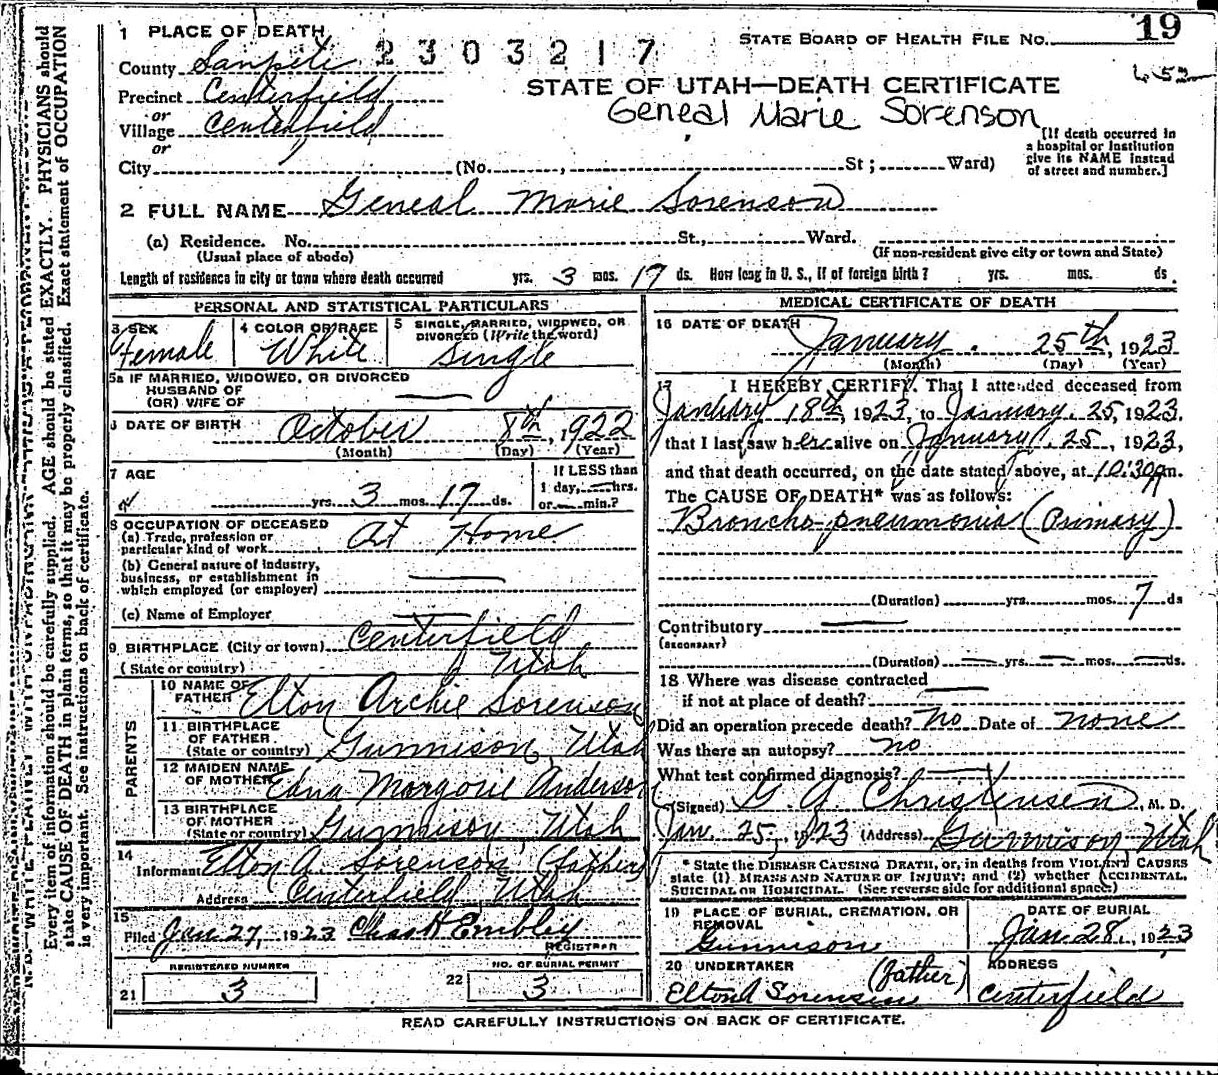 19
1 PLACE OF DEATH
2303217
STATE BOARD OF HEALTH FILE NO.
County Sanpete
STATE OF UTAH—DEATH CERTIFICATE
Precinct Centerfield
Geneal Marie Sorenson
or
Village Centerfield
or
[If death occurred in
a hospital or institution
give its NAME instead
of street and number.]
City (No. , St; Ward)
2 FULL NAME Geneal Marie Sorenson
(a) Residence. No. St., Ward.
(Usual place of abode) (If non-resident give city or town and State)
Length of residence in city or town where death occurred yrs. 3 mos. 17 ds. How long in U. S., if of foreign birth? yrs. mos. ds.
PERSONAL AND STATISTICAL PARTICULARS
3 SEX Female
4 COLOR OR RACE White
5 SINGLE, MARRIED, WIDOWED, OR
DIVORCED (Write the word)
Single
5a IF MARRIED, WIDOWED, OR DIVORCED
HUSBAND OF
(OR) WIFE OF
6 DATE OF BIRTH October 8th, 1922
(Month) (Day) (Year)
7 AGE
yrs. 3 mos. 17 ds.
If LESS than
1 day, hrs.
or min.?
8 OCCUPATION OF DECEASED
(a) Trade, profession or
particular kind of work At Home
(b) General nature of industry,
business, or establishment in
which employed (or employer)
(c) Name of Employer
9 BIRTHPLACE (City or town) Centerfield
(State or country) Utah
PARENTS
10 NAME OF
FATHER Elton Archie Sorenson
11 BIRTHPLACE
OF FATHER
(State or country) Gunnison, Utah
12 MAIDEN NAME
OF MOTHER Edna Margorie Anderson
13 BIRTHPLACE
OF MOTHER
(State or country) Gunnison, Utah
14
Informant Elton A. Sorenson (father)
Address Centerfield, Utah
15
Filed Jan. 27, 1923 Chas H Embley
REGISTRAR
REGISTERED NUMBER
21 3
NO. OF BURIAL PERMIT
22 3
MEDICAL CERTIFICATE OF DEATH
16 DATE OF DEATH
January 25th, 1923
(Month) (Day) (Year)
17 I HEREBY CERTIFY, That I attended deceased from
January 18th, 1923, to January 25, 1923,
that I last saw her alive on January 25, 1923,
and that death occurred, on the date stated above, at 10:30 m.
The CAUSE OF DEATH* was as follows:
Broncho-pneumonia (Primary)
(Duration) yrs. mos. 7 ds
Contributory
(SECONDARY)
(Duration) yrs. mos. ds.
18 Where was disease contracted
if not at place of death?
Did an operation precede death? no Date of none
Was there an autopsy? no
What test confirmed diagnosis?
(Signed) G. A. Christensen, M. D.
Jan. 25, 1923 (Address) Gunnison, Utah
* State the DISEASE CAUSING DEATH, or, in deaths from VIOLENT CAUSES
state (1) MEANS AND NATURE OF INJURY; and (2) whether ACCIDENTAL,
SUICIDAL OR HOMICIDAL. (See reverse side for additional space.)
19 PLACE OF BURIAL, CREMATION, OR
REMOVAL
Gunnison
DATE OF BURIAL
Jan. 28, 1923
20 UNDERTAKER (father)
Elton A Sorenson
ADDRESS
Centerfield
READ CAREFULLY INSTRUCTIONS ON BACK OF CERTIFICATE.
Every item of information should be carefully supplied. AGE should be stated EXACTLY. PHYSICIANS should
state CAUSE OF DEATH in plain terms, so that it may be properly classified. Exact statement of OCCUPATION
is very important. See instructions on back of certificate.